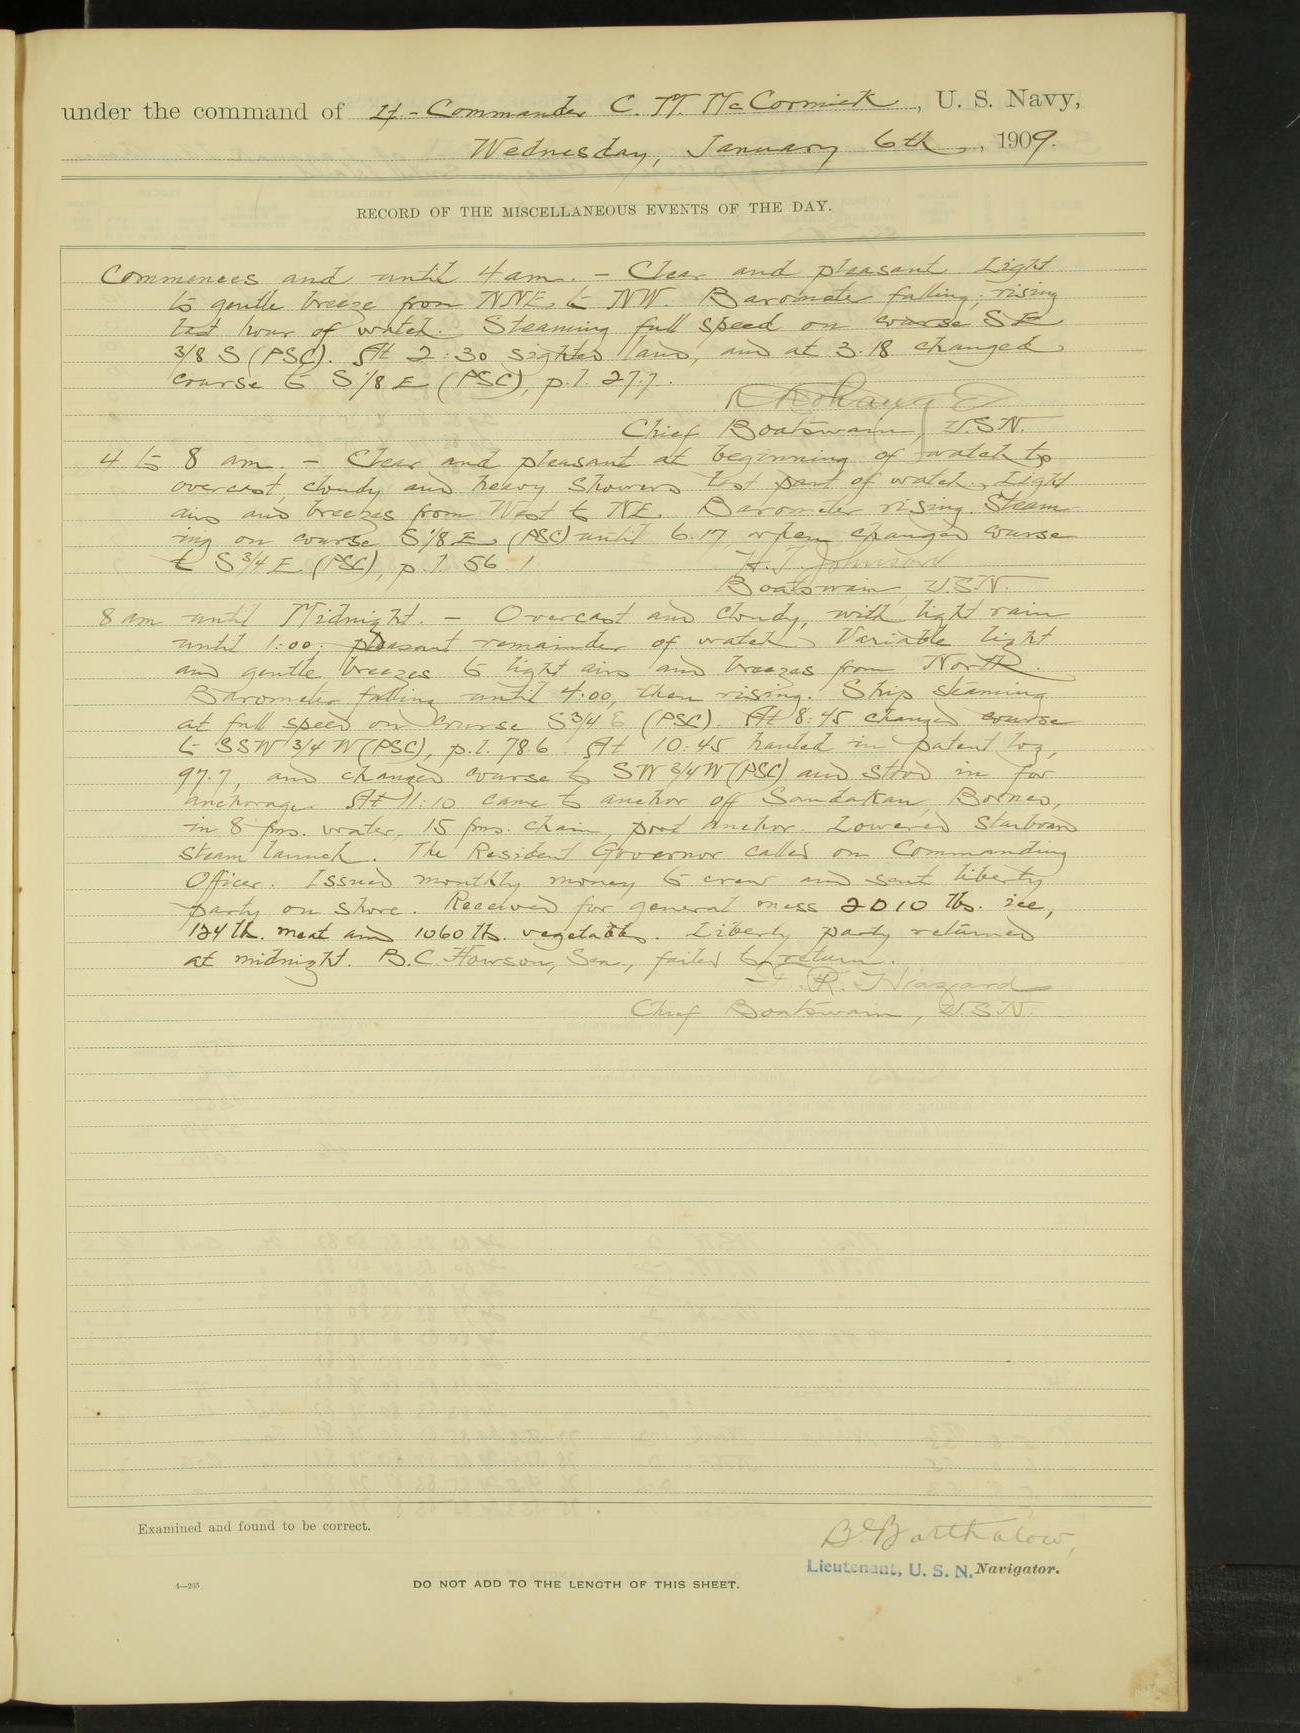 under the command of Lt-Commander C. M. McCormick, U. S. Navy,
Wednesday, January 6th, 1909.
RECORD OF THE MISCELLANEOUS EVENTS OF THE DAY.
Commences and until 4 am. - Clear and pleasant. Light
to gentle breeze from NNE to NW. Barometer falling; rising
last hour of watch. Steaming full speed on course SE
3/8 S (PSC). At 2:30 sighted land, and at 3.18 changed
course to S 1/8 E (PSC), p.l. 27.7.
Chief Boatswain, U.S.N.
4 to 8 am. - Clear and pleasant at beginning of watch to
overcast, cloudy and heavy showers last part of watch. Light
airs and breezes from West to NE. Barometer rising. Steam-
ing on course S 1/8 E (PSC) until 6.17 when changed course
to S 3/4 E (PSC), p.l. 56.1
H. J. Johnson
Boatswain, U.S.N.
8 am until Midnight. - Overcast and cloudy, with light rain
until 1:00; pleasant remainder of watch. Variable light
and gentle breezes to light airs and breezes from North.
Barometer falling until 4:00, then rising. Ship steaming
at full speed on course S 3/4 E (PSC). At 8:45 changed course
to SSW 3/4 W (PSC), p.l. 78.6. At 10:45 hauled in patent log,
97.7, and changed course to SW 3/4 W (PSC) and stood in for
anchorage. At 11:10 came to anchor off Sandakan, Borneo,
in 8 fms. water, 15 fms. chain, port anchor. Lowered starboard
steam launch. The Resident Governor called on Commanding
Officer. Issued monthly money to crew and sent liberty
party on shore. Received for general mess 2010 lbs. ice,
124 lb. meat and 1060 lb. vegetables. Liberty party returned
at midnight. B.C. Howson, Sea., failed to return.
F. R. Hazard
Chief Boatswain, U.S.N.
Examined and found to be correct.
Barthalow,
Lieutenant, U. S. N. Navigator.
4—205
DO NOT ADD TO THE LENGTH OF THIS SHEET.